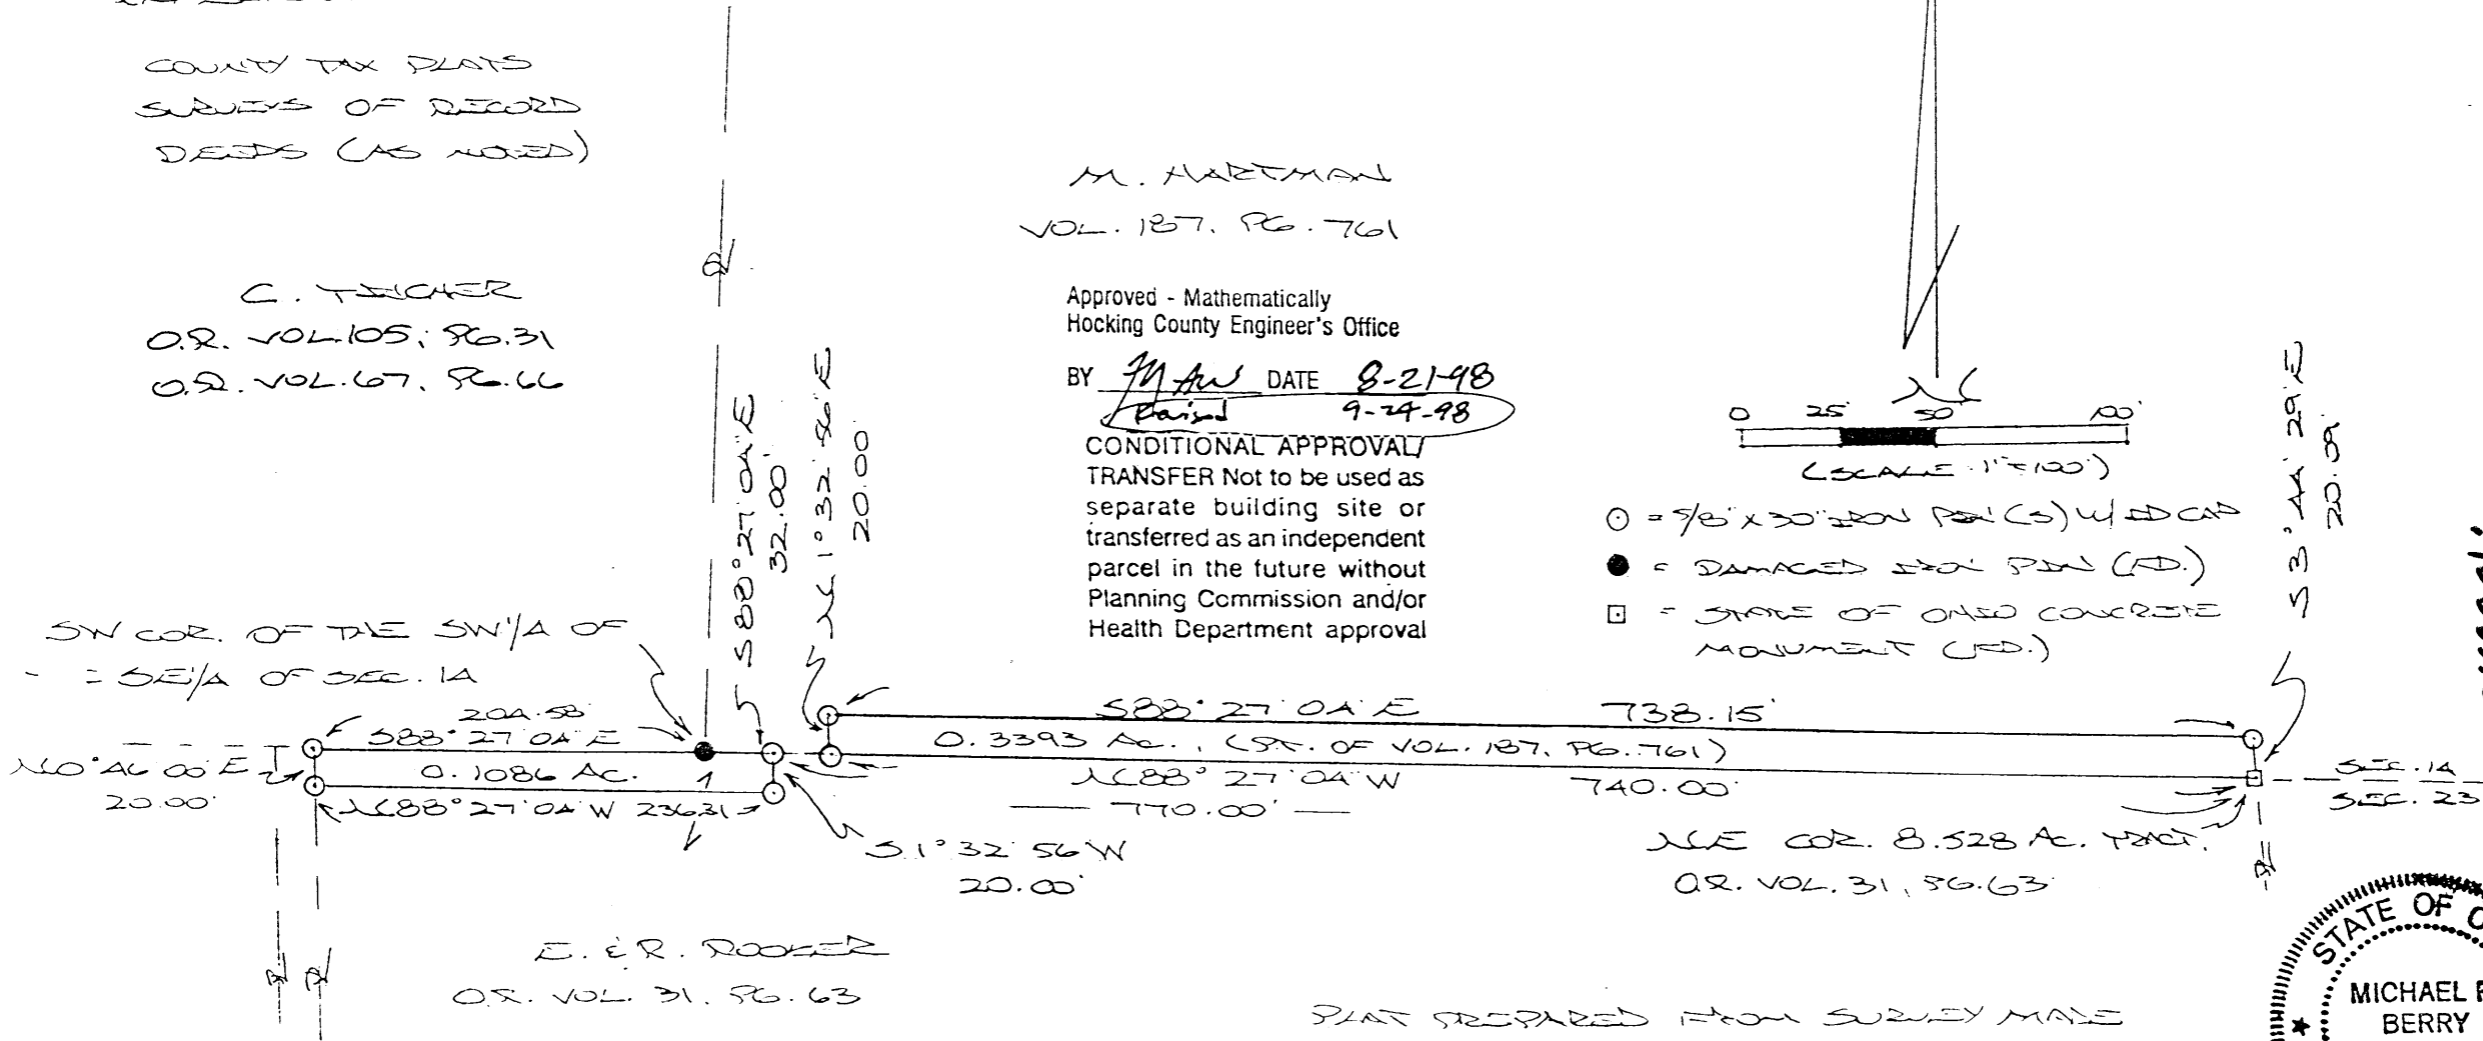 COUNTY TAX PLATS
SURVEYS OF RECORD
DEEDS (AS NOTED)
M. HARTMAN
VOL. 187, PG. 761
C. TEICHER
O.R. VOL. 105, PG. 31
O.R. VOL. 67, PG. 66
Approved - Mathematically
Hocking County Engineer's Office
BY DATE 8-21-98
Revised 9-24-98
CONDITIONAL APPROVAL/
TRANSFER Not to be used as
separate building site or
transferred as an independent
parcel in the future without
Planning Commission and/or
Health Department approval
0 25' 50' 100'
(SCALE 1"=100')
= 5/8" X 30" IRON PIN (S) W/ ID CAP
= DAMAGED IRON PIN (FD.)
= STATE OF OHIO CONCRETE
MONUMENT (FD.)
S 3° 44' 29" E
20.09'
S 88° 27' 04" E
32.00'
N 1° 32' 56" E
20.00'
SW COR. OF THE SW 1/4 OF
SE 1/4 OF SEC. 14
204.58'
S 88° 27' 04" E
0.1086 AC.
N 88° 27' 04" W 236.31'
N 0° 46' 00" E
20.00'
S 88° 27' 04" E 738.15'
0.3393 AC., (PT. OF VOL. 187, PG. 761)
N 88° 27' 04" W 740.00'
770.00'
S 1° 32' 56" W
20.00'
SEC. 14
SEC. 23
NE COR. 8.528 AC. TRACT,
O.R. VOL. 31, PG. 63
E. & R. ROOKER
O.R. VOL. 31, PG. 63
PLAT PREPARED FROM SURVEY MADE
STATE OF O
MICHAEL P
BERRY